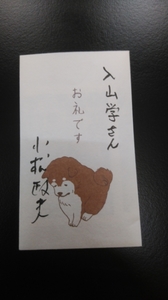 入山学さん
お礼です
小松政夫